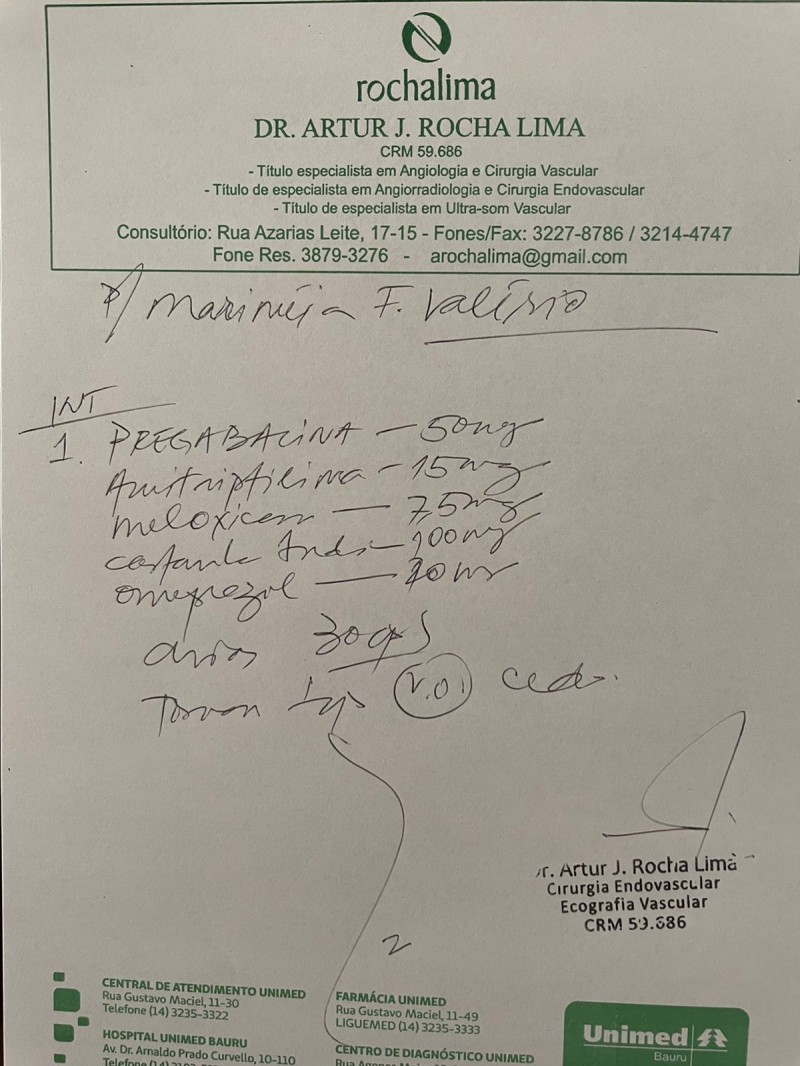 rochalima
DR. ARTUR J. ROCHA LIMA
CRM 59.686
- Título especialista em Angiologia e Cirurgia Vascular
- Título de especialista em Angiorradiologia e Cirurgia Endovascular
- Título de especialista em Ultra-som Vascular
Consultório: Rua Azarias Leite, 17-15 - Fones/Fax: 3227-8786 / 3214-4747
Fone Res. 3879-3276 - arochalima@gmail.com
P/ F. Valério
INT
1. PREGABALINA - 50mg
Amitriptilina - 15mg
meloxicam - 7,5mg
castanha - 100mg
omeprazol - 20mg
30
Tomar V.O.
Dr. Artur J. Rocha Lima
Cirurgia Endovascular
Ecografia Vascular
CRM 59.686
CENTRAL DE ATENDIMENTO UNIMED
Rua Gustavo Maciel, 11-30
Telefone (14) 3235-3322
HOSPITAL UNIMED BAURU
Av. Dr. Arnaldo Prado Curvello, 10-110
FARMÁCIA UNIMED
Rua Gustavo Maciel, 11-49
LIGUEMED (14) 3235-3333
CENTRO DE DIAGNÓSTICO UNIMED
Unimed
Bauru